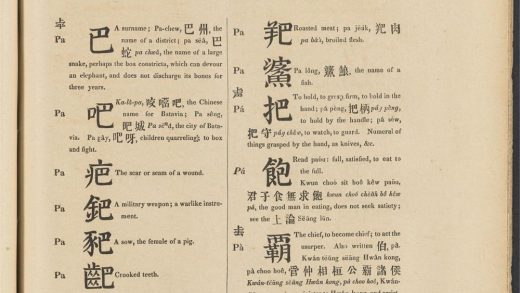 Pa
巴
A surname; Pa-chew, 巴州, the
name of a district; pa sëâ, 巴
蛇 pa chëâ, the name of a large
snake, perhaps the boa constricta, which can devour
an elephant, and does not discharge its bones for
three years.
Pa
吧
Ka-la-pa, 咬𠺕吧, the Chinese
name for Batavia; Pa sëng,
吧城 the city of Bata-
via. Pa gây, 吧呀, children quarreling to box
and fight.
Pa
疤
The scar or seam of a wound.
Pa
鈀
A military weapon; a warlike instru-
ment.
Pa
豝
A sow, the female of a pig.
Pa
齙
Crooked teeth.
Pa
Roasted meat; pa jëuk, 肉
broiled flesh.
Pa
鯊
Pa lông, the name of a
fish.
Pa
把
To hold, to grasp firm, to hold in the
hand; pà pèng, 把柄 páy pèng,
to hold by the handle; pà sëw,
把守 to watch, to guard. Numeral of
things grasped by the hand, as knives, &c.
Pá
飽
Read paòu: full, satisfied, to eat to
the full.
Kwun choò sit boô kêw paòu,
君子食無求飽 kwun choó chëăh bó kêw
pá, the good man in eating, does not seek satiety;
see the 上論 Sëāng lūn.
去
Pà
霸
The chief, to become chief; to act the
usurper. Also written 伯, pà.
Kwán-tëūng sëàng Hwân kong,
pà choo hoê, 管仲相桓公霸諸侯
Kwán-tëūng sëàng Hwân kong, pà choo hoê, Kwán-